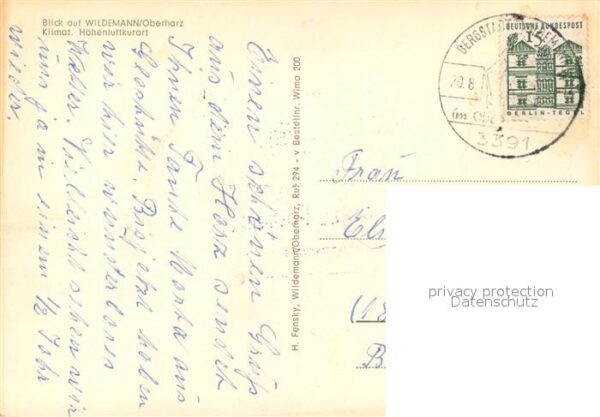 Blick auf WILDEMANN/Oberharz
Klimat. Höhenluftkurort
Einen schönen Gruß
aus dem Harz sendet
Ihnen Tante Marta aus
wir hier wunderbares
Wetter. Vielleicht sehen wir
uns ja in einem 1/2 Jahr
wieder.
H. Fensky, Wildemann/Oberharz, Ruf 294 - v Bestellnr. Wima 200
BERGSTADT
20.8
im Obe
3391
DEUTSCHE BUNDESPOST
15
BERLIN-TEGEL
Frau
El
(1
B
privacy protection
Datenschutz